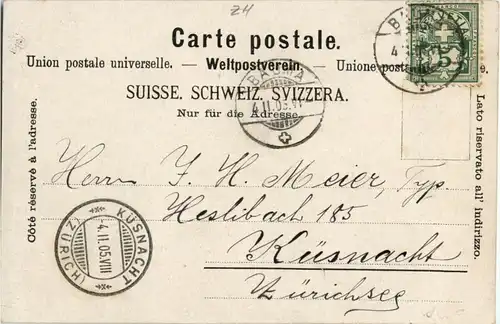 ZH
Carte postale.
Union postale universelle. — Weltpostverein. — Unione posta e.
SUISSE. SCHWEIZ. SVIZZERA.
Nur für die Adresse
Côté réservé à l'adresse.
Lato riservato all' indirizzo.
BAUMA
4.II.05.
HELVETIA
5
Herrn J. H. Meier, Typ.
Heslibach 185
Küsnacht
Zürichsee
KÜSNACHT
4.II.05.VIII
(ZÜRICH)